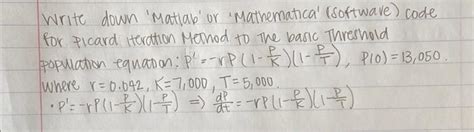 Write down 'Matlab' or 'Mathematica' (software) code
for picard iteration Method to the basic Threshold
population equation: P' = -rP(1-P/K)(1-P/T), P(0) = 13,050.
where r = 0.042, K = 7,000, T = 5,000.
• P' = -rP(1-P/K)(1-P/T) ⇒ dP/dt = -rP(1-P/K)(1-P/T)